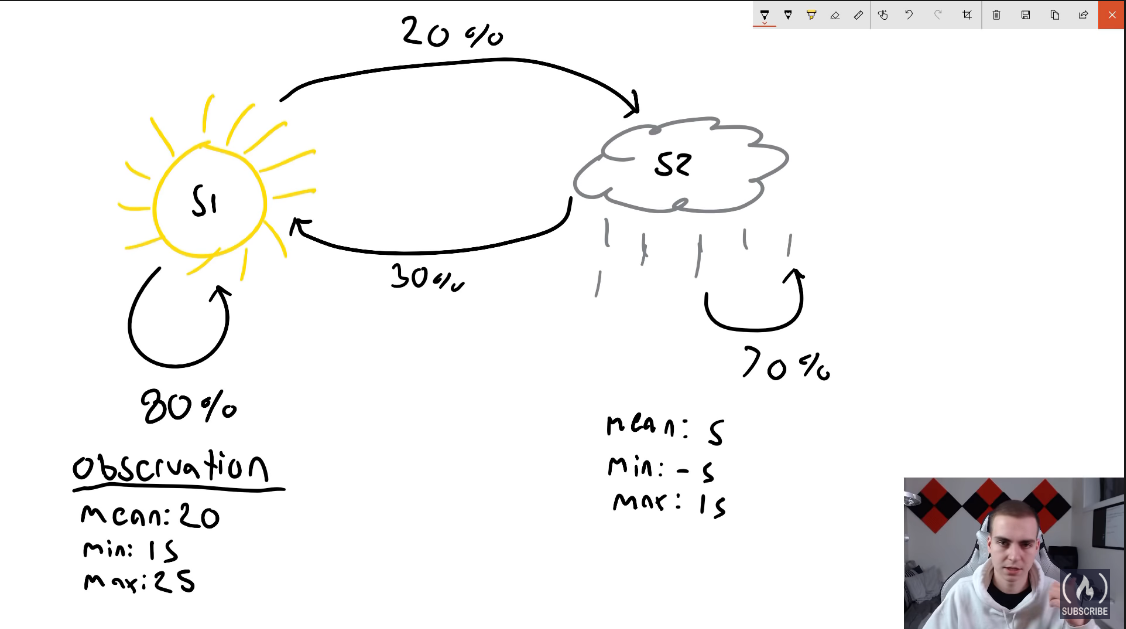 20%
S1
S2
30%
80%
70%
observation
mean: 20
min: 15
max: 25
mean: 5
min: -5
max: 15
SUBSCRIBE